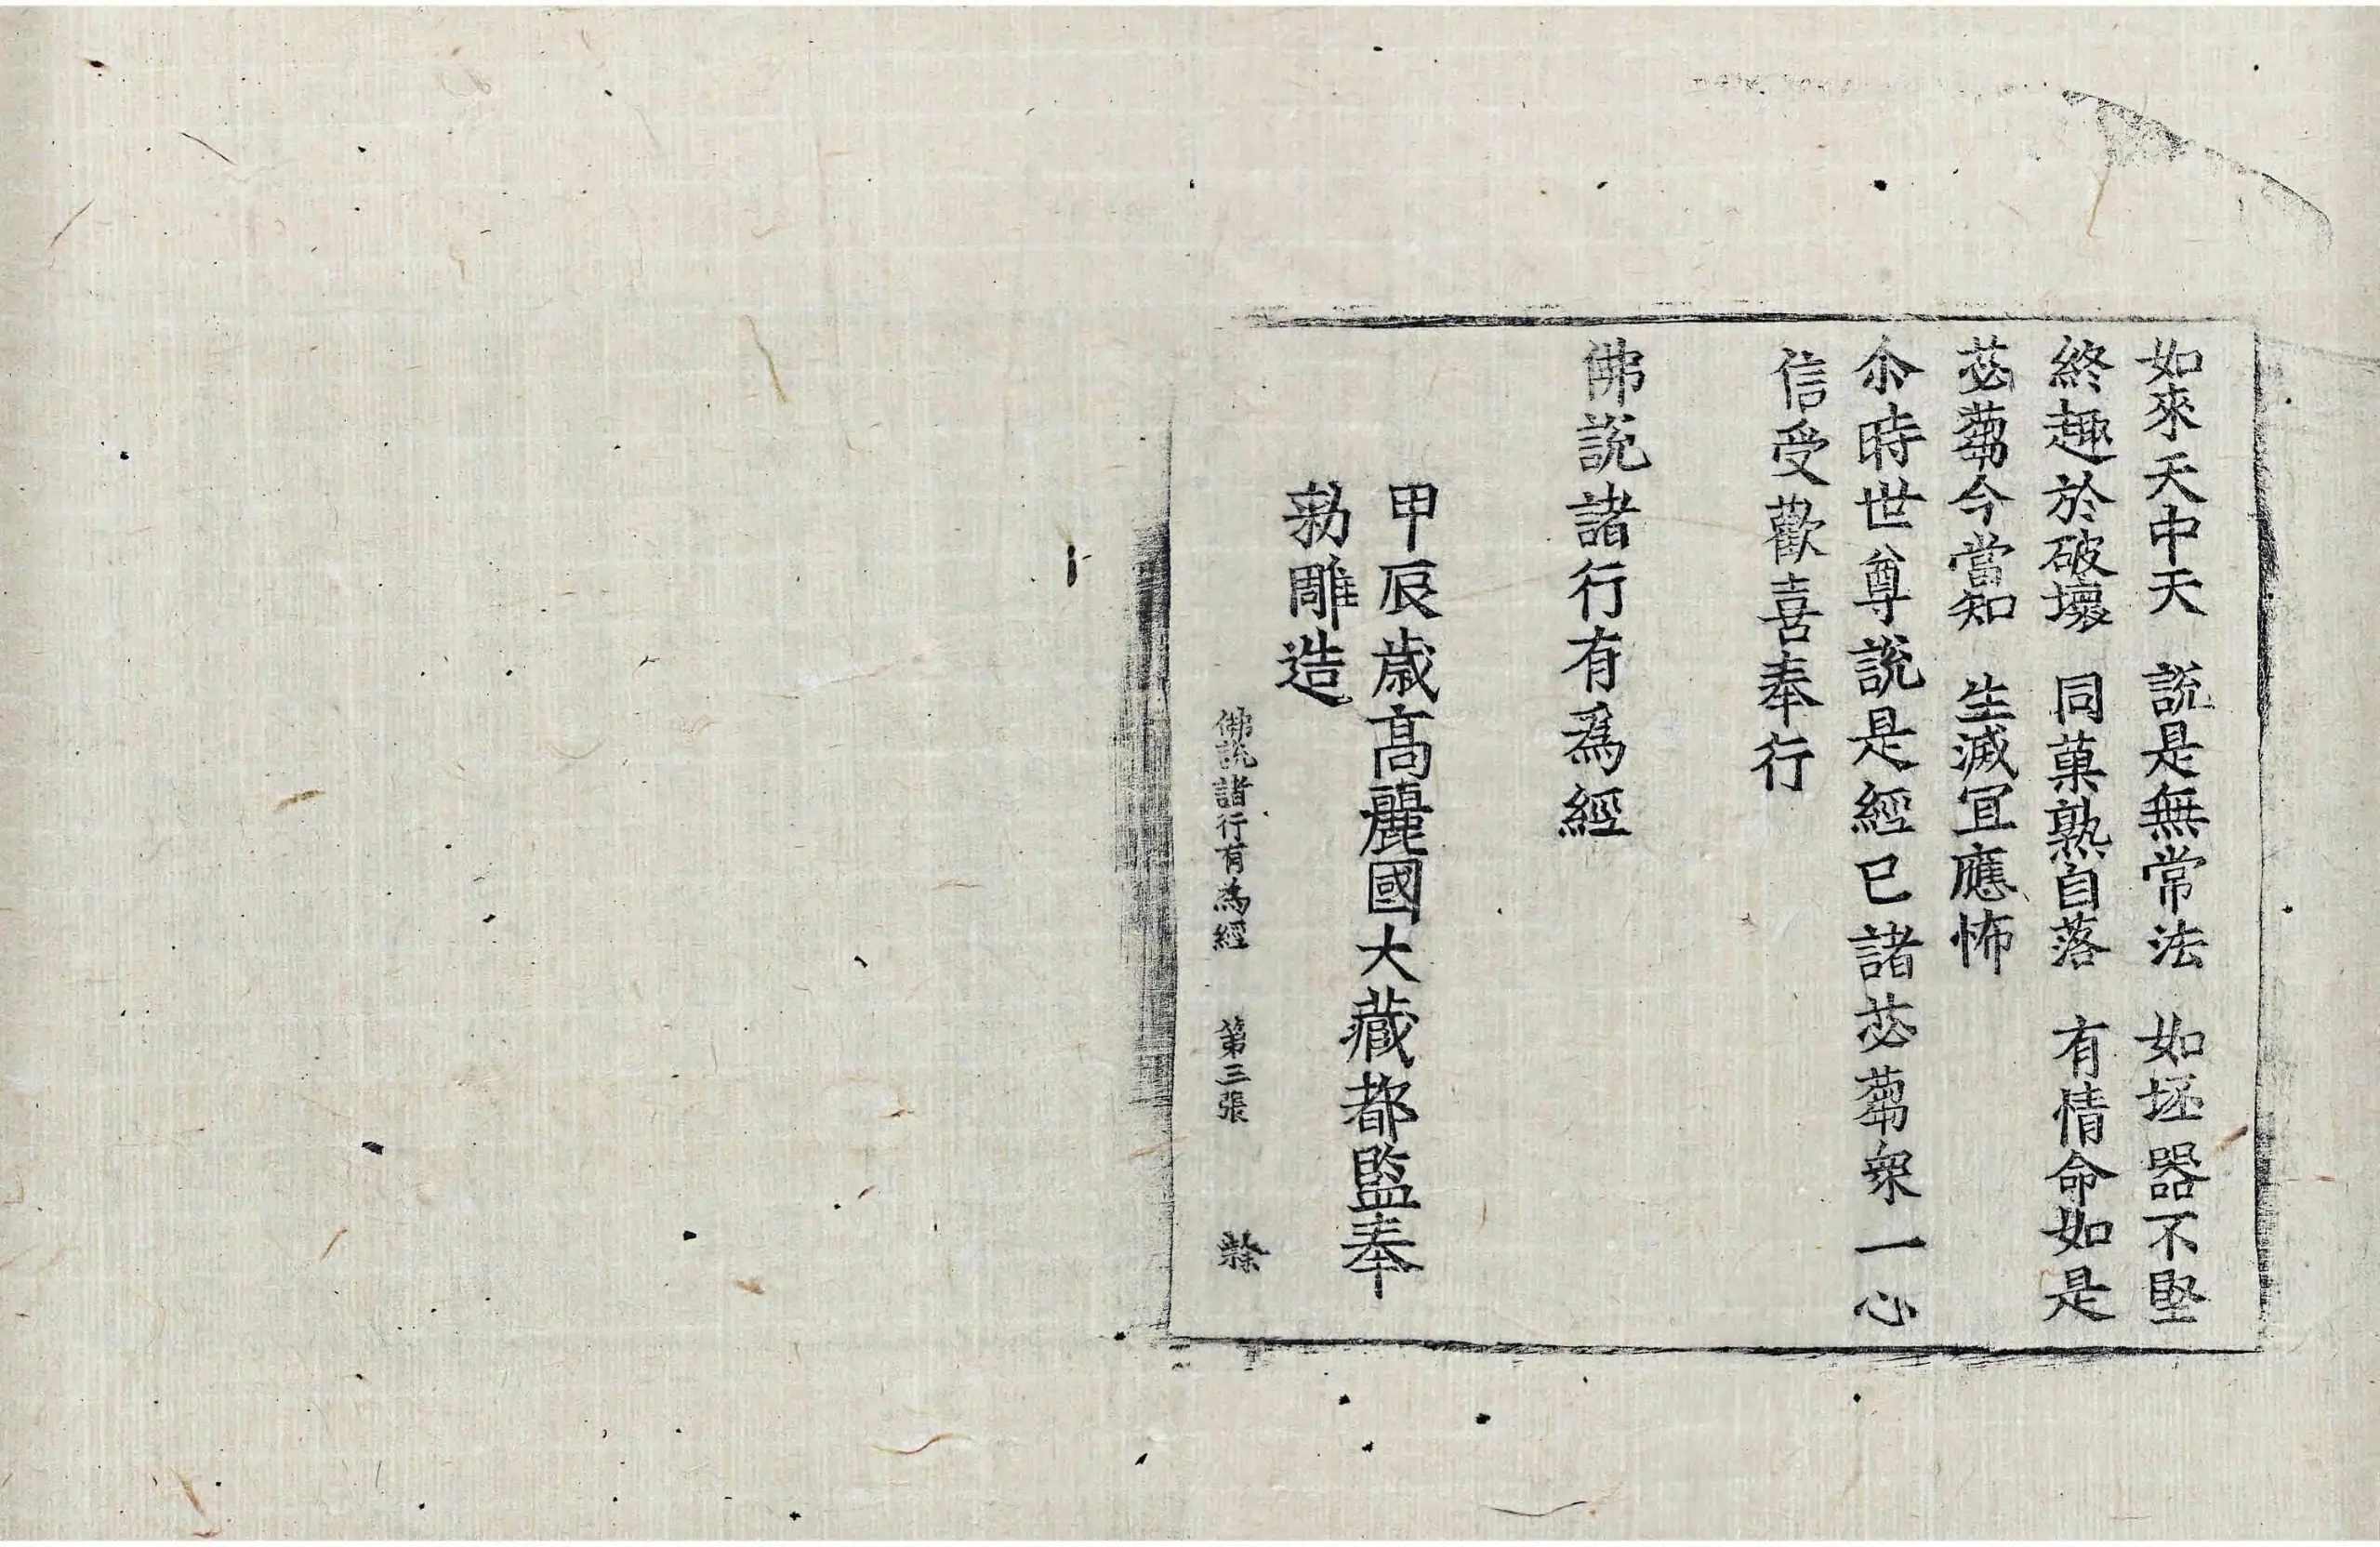 如來天中天　說是無常法　如坯器不堅
終趣於破壞　同菓熟自落　有情命如是
苾蒭今當知　生滅冝應怖
尒時世尊說是經已諸苾蒭衆一心
信受歡喜奉行
佛說諸行有爲經
甲辰歲高麗國大藏都監奉
勑雕造
佛說諸行有爲經　第三張